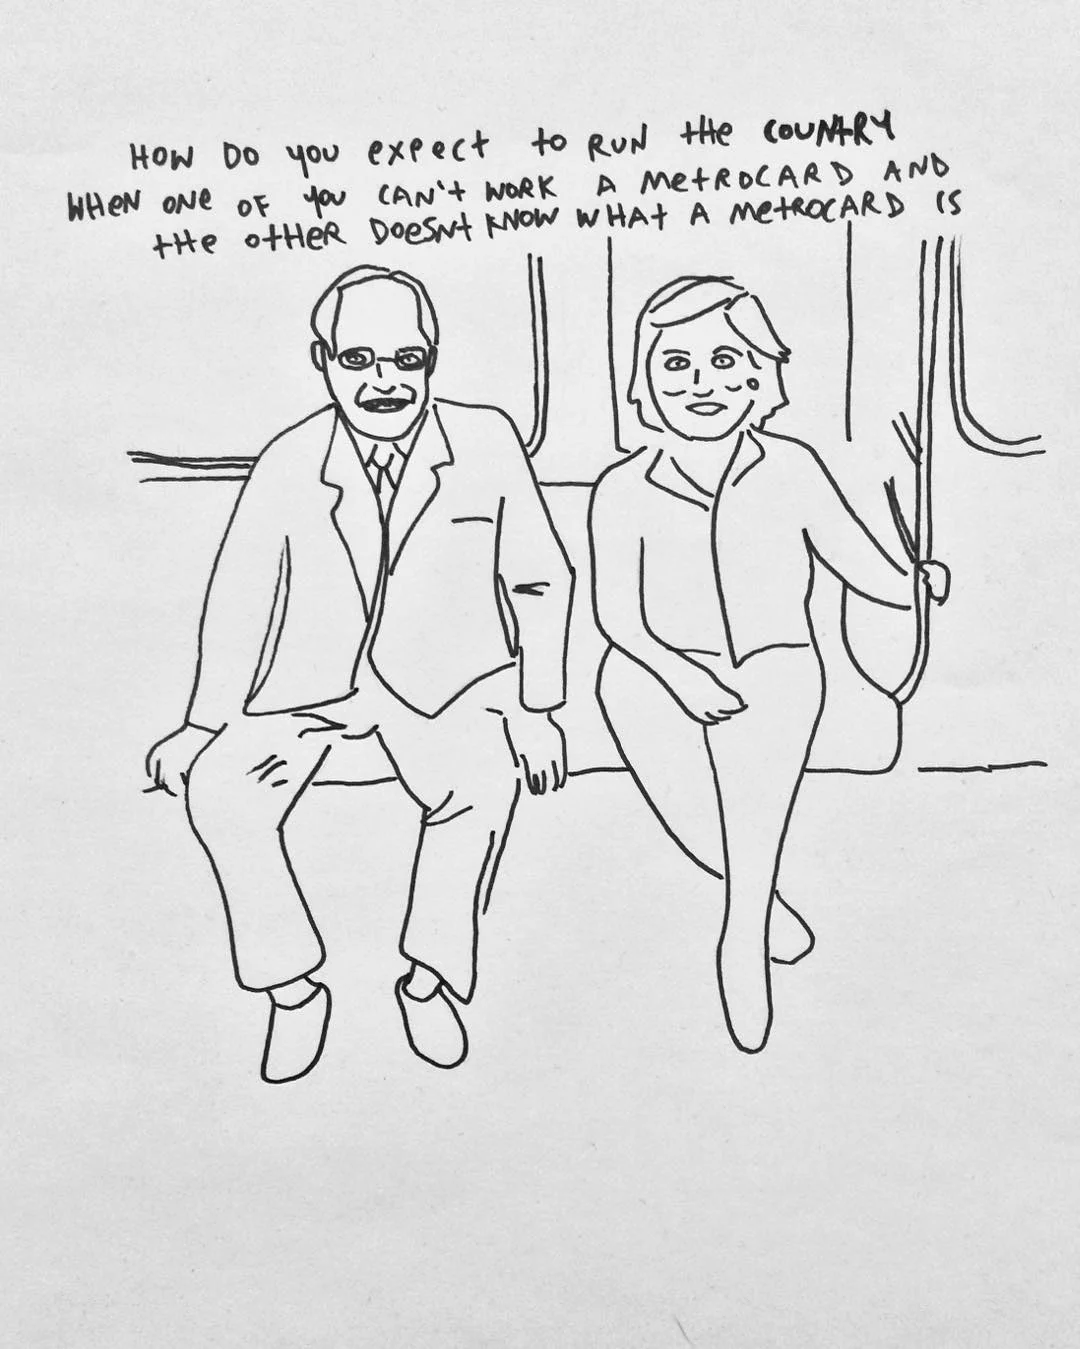 HOW DO YOU EXPECT TO RUN THE COUNTRY
WHEN ONE OF YOU CAN'T WORK A METROCARD AND
THE OTHER DOESNT KNOW WHAT A METROCARD IS